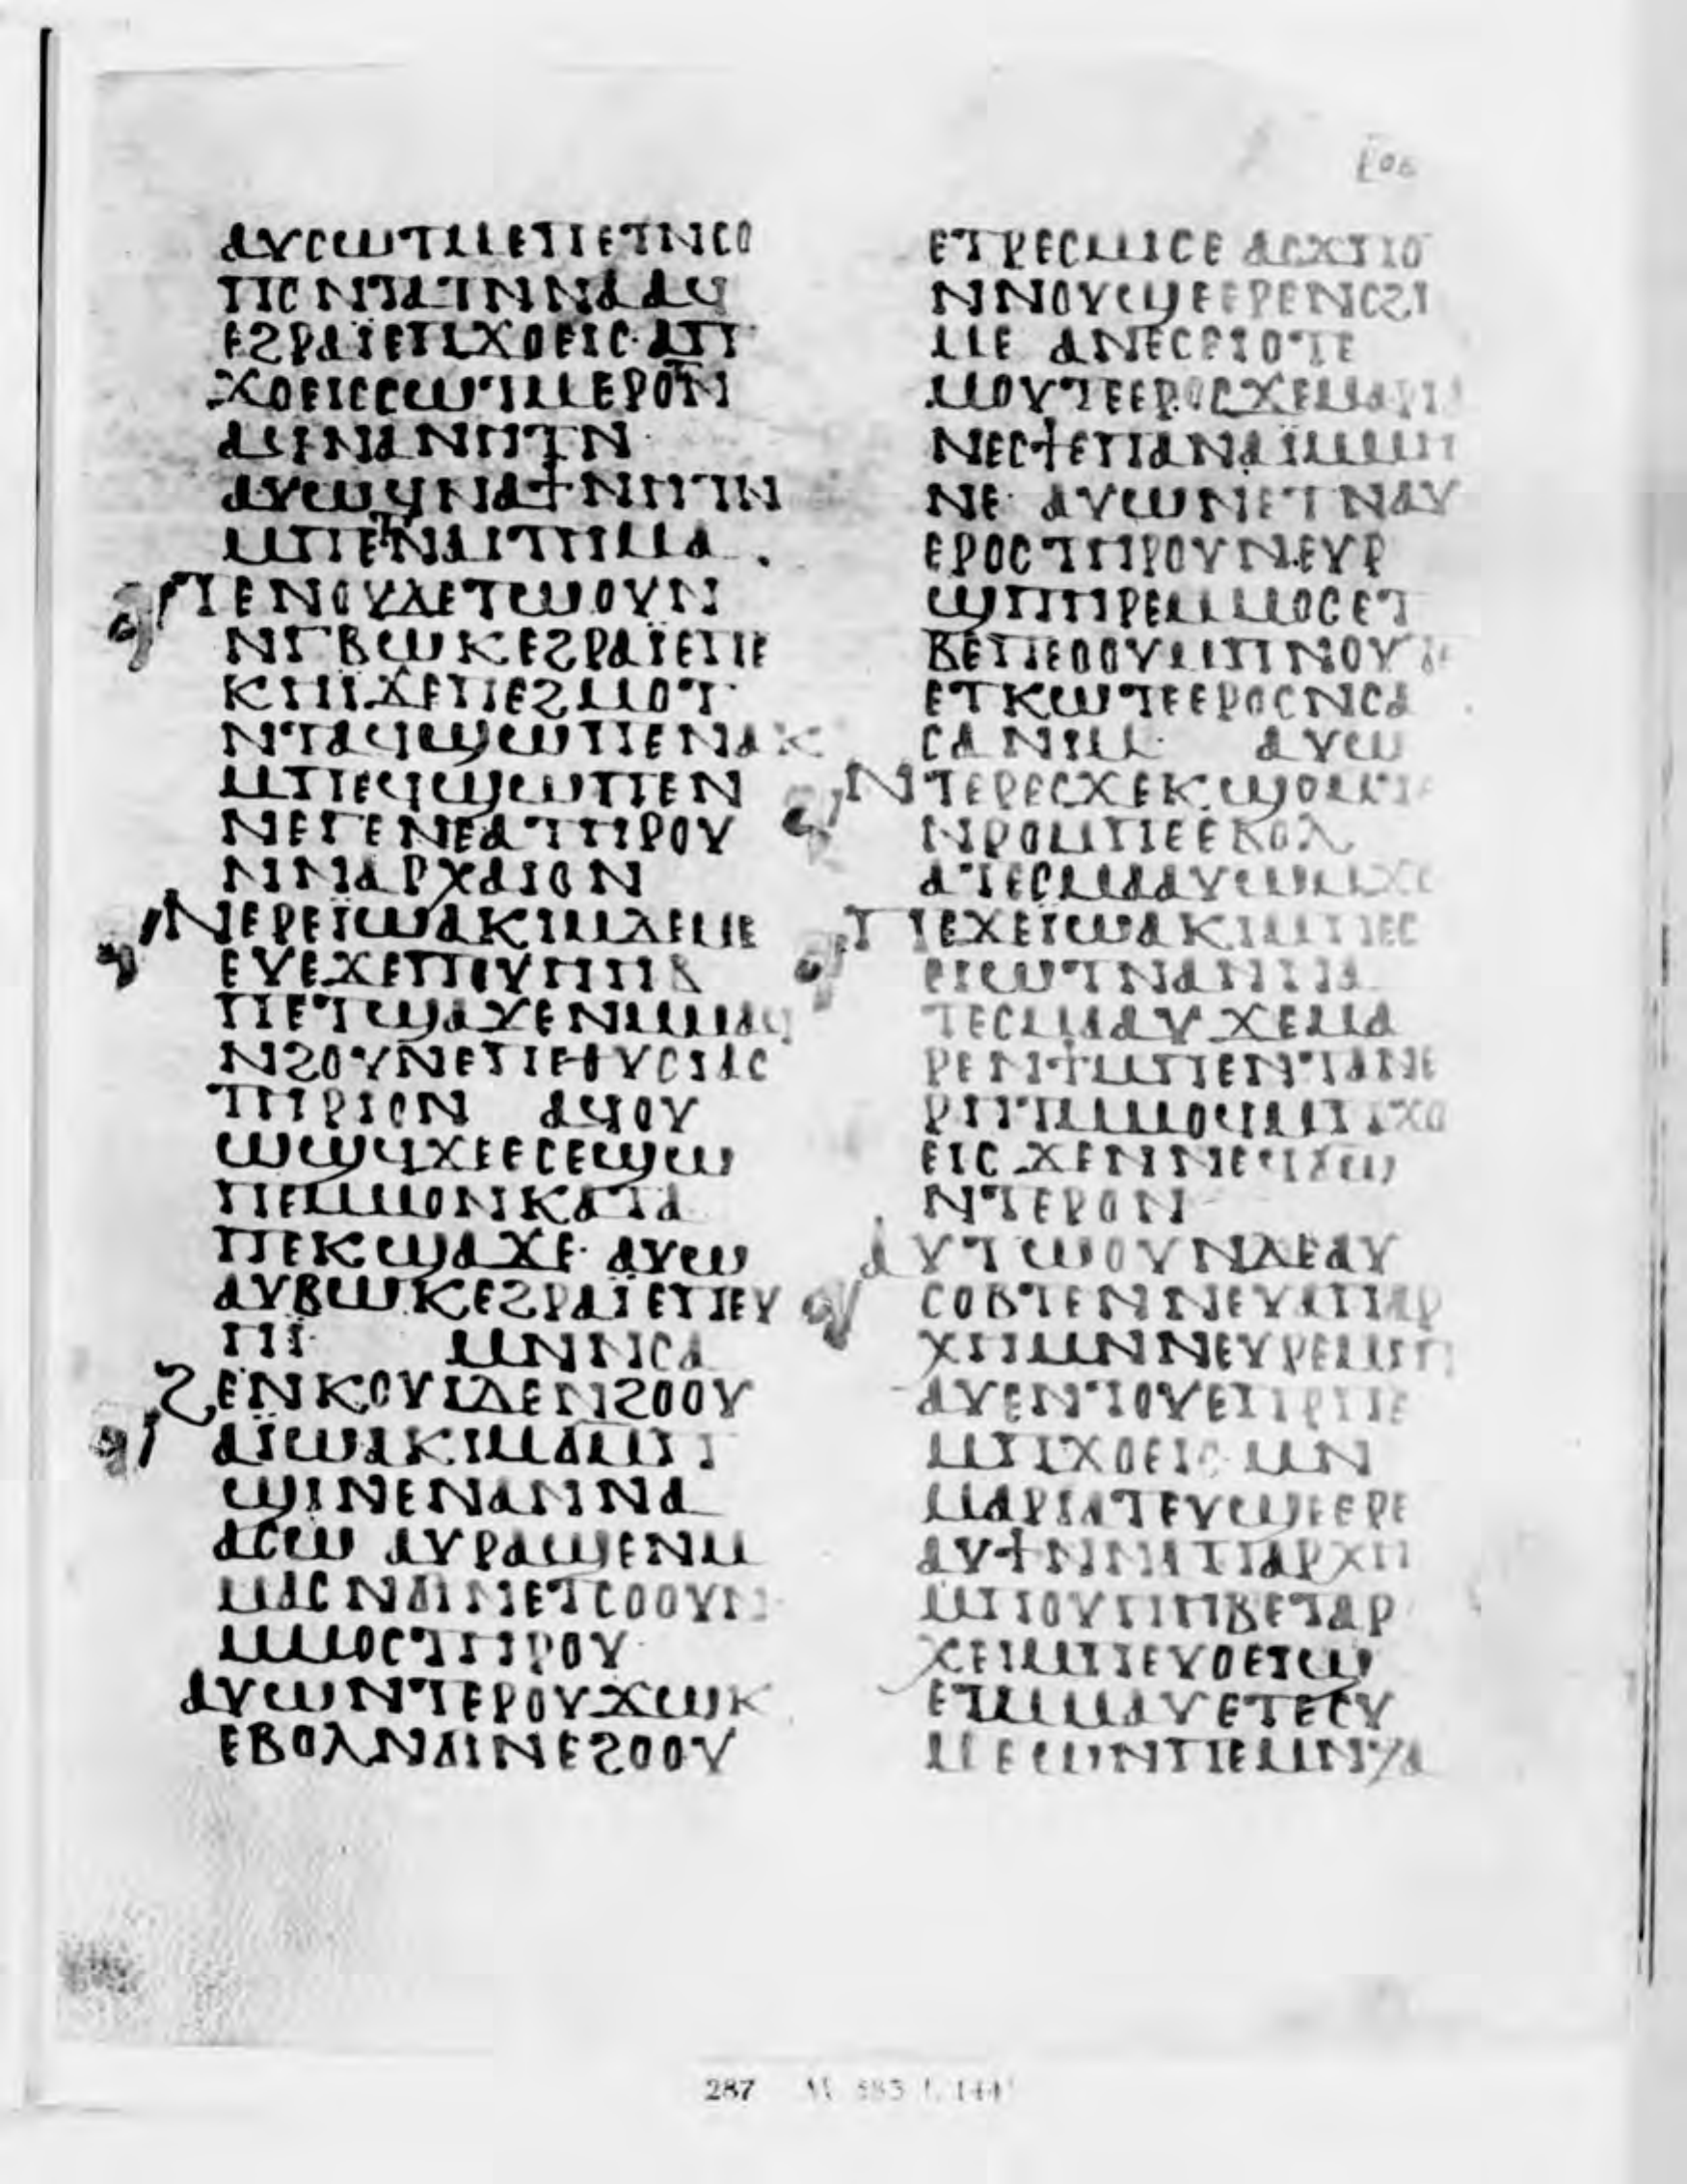 ⲁⲩⲥⲱⲧⲙⲉⲡⲉⲧⲛⲥⲟ
ⲡⲥ ⲛⲧⲁⲧⲛⲛⲁⲁϥ
ⲉϩⲣⲁⲓ̈ⲉⲡϫⲟⲉⲓⲥ· ⲁⲡ
ϫⲟⲉⲓⲥⲥⲱⲧⲙⲉⲣⲟⲧⲛ
ⲁϥⲛⲁⲛⲏⲧⲛ
ⲁⲩⲱϥⲛⲁϯⲛⲏⲧⲛ
ⲙⲡⲉⲧⲛⲁⲓⲧⲏⲙⲁ.
ⲧⲉⲛⲟⲩⲇⲉⲧⲱⲟⲩⲛ
ⲛⲅⲃⲱⲕⲉϩⲣⲁⲓ̈ⲉⲡⲉ
ⲕⲏⲓ̈ϫⲉⲡⲉϩⲙⲟⲧ
ⲛⲧⲁϥϣⲱⲡⲉⲛⲁⲕ
ⲙⲡⲉϥϣⲱⲡⲉⲛ
ⲛⲉⲅⲉⲛⲉⲁⲧⲏⲣⲟⲩ
ⲛⲛⲁⲣⲭⲁⲓⲟⲛ
ⲛⲉⲣⲉⲓ̈ⲱⲁⲕⲓⲙⲇⲉⲙⲉ
ⲉⲩⲉϫⲉⲡⲟⲩⲏⲏⲃ
ⲡⲉⲧϣⲁϫⲉⲛⲙⲙⲁϥ
ⲛϩⲟⲩⲛⲉⲡⲉⲑⲩⲥⲓⲁⲥ
ⲧⲏⲣⲓⲟⲛ ⲁϥⲟⲩ
ⲱϣϥϫⲉⲉⲥⲉϣⲱ
ⲡⲉⲙⲙⲟⲛⲕⲁⲧⲁ
ⲡⲉⲕϣⲁϫⲉ· ⲁⲩⲱ
ⲁⲩⲃⲱⲕⲉϩⲣⲁⲓ̈ⲉⲡⲉⲩ
ⲏⲓ̈· ⲙⲛⲛⲥⲁ
ϩⲉⲛⲕⲟⲩⲓⲇⲉⲛϩⲟⲟⲩ
ⲁⲓ̈ⲱⲁⲕⲓⲙϭⲙⲡ
ϣⲓⲛⲉⲛⲁⲛⲛⲁ
ⲁⲥⲱ ⲁⲩⲣⲁϣⲉⲛⲙ
ⲙⲁⲥ ⲛϭⲓⲛⲉⲧⲥⲟⲟⲩⲛ
ⲙⲙⲟⲥⲧⲏⲣⲟⲩ·
ⲁⲩⲱⲛⲧⲉⲣⲟⲩϫⲱⲕ
ⲉⲃⲟⲗⲛϭⲓⲛⲉϩⲟⲟⲩ
ⲉⲧⲣⲉⲥⲙⲓⲥⲉ ⲁⲥϫⲡⲟ
ⲛⲛⲟⲩϣⲉⲉⲣⲉⲛⲥϩⲓ
ⲙⲉ ⲁⲛⲉⲥⲉⲓⲟⲧⲉ
ⲙⲟⲩⲧⲉⲉⲣⲟⲥϫⲉⲙⲁⲣⲓⲁ
ⲛⲉⲥϯⲉⲡⲁⲛⲁⲓ̈ⲙⲙⲏ
ⲛⲉ· ⲁⲩⲱⲛⲉⲧⲛⲁⲩ
ⲉⲣⲟⲥⲧⲏⲣⲟⲩⲛⲉⲩⲣ
ϣⲡⲏⲣⲉⲙⲙⲟⲥⲉⲧ
ⲃⲉⲡⲉⲟⲟⲩⲙⲡⲛⲟⲩⲧⲉ
ⲉⲧⲕⲱⲧⲉⲉⲣⲟⲥⲛⲥⲁ
ⲥⲁ ⲛⲓⲙ· ⲁⲩⲱ
ⲛⲧⲉⲣⲉⲥϫⲉⲕϣⲟⲙⲧⲉ
ⲛⲣⲟⲙⲡⲉⲉⲃⲟⲗ
ⲁⲧⲉⲥⲙⲁⲁⲩ
ⲡⲉϫⲉⲓ̈ⲱⲁⲕⲓⲙⲡⲉⲥ
ⲉⲓⲱⲧⲛⲁⲛⲛⲁ
ⲧⲉⲥⲙⲁⲁⲩ ϫⲉⲙⲁ
ⲣⲉⲛϯⲙⲡⲉⲛⲧⲁⲛⲉ
ⲣⲏⲧⲙⲙⲟϥⲙⲡϫⲟ
ⲉⲓⲥ ϫⲉⲛⲛⲉϥϭⲱ
ⲛⲧⲉⲣⲟⲛ
ⲁⲩⲧⲱⲟⲩⲛⲇⲉⲁⲩ
ⲥⲟⲃⲧⲉⲛⲛⲉⲩⲁⲡⲁⲣ
ⲭⲏⲙⲛⲛⲉⲩⲣⲉⲙⲏⲧ
ⲁⲩⲉⲛⲧⲟⲩⲉⲡⲣⲡⲉ
ⲙⲡϫⲟⲉⲓⲥ ⲙⲛ
ⲙⲁⲣⲓⲁⲧⲉⲩϣⲉⲉⲣⲉ
ⲁⲩϯⲛⲛⲁⲡⲁⲣⲭⲏ
ⲙⲡⲟⲩⲏⲏⲃⲉⲧⲁⲣ
ⲭⲉⲓⲙⲡⲉⲩⲟⲉⲓϣ
ⲉⲧⲙⲙⲁⲩⲉⲧⲉⲥⲩ
ⲙⲉⲱⲛⲡⲉⲙⲛ